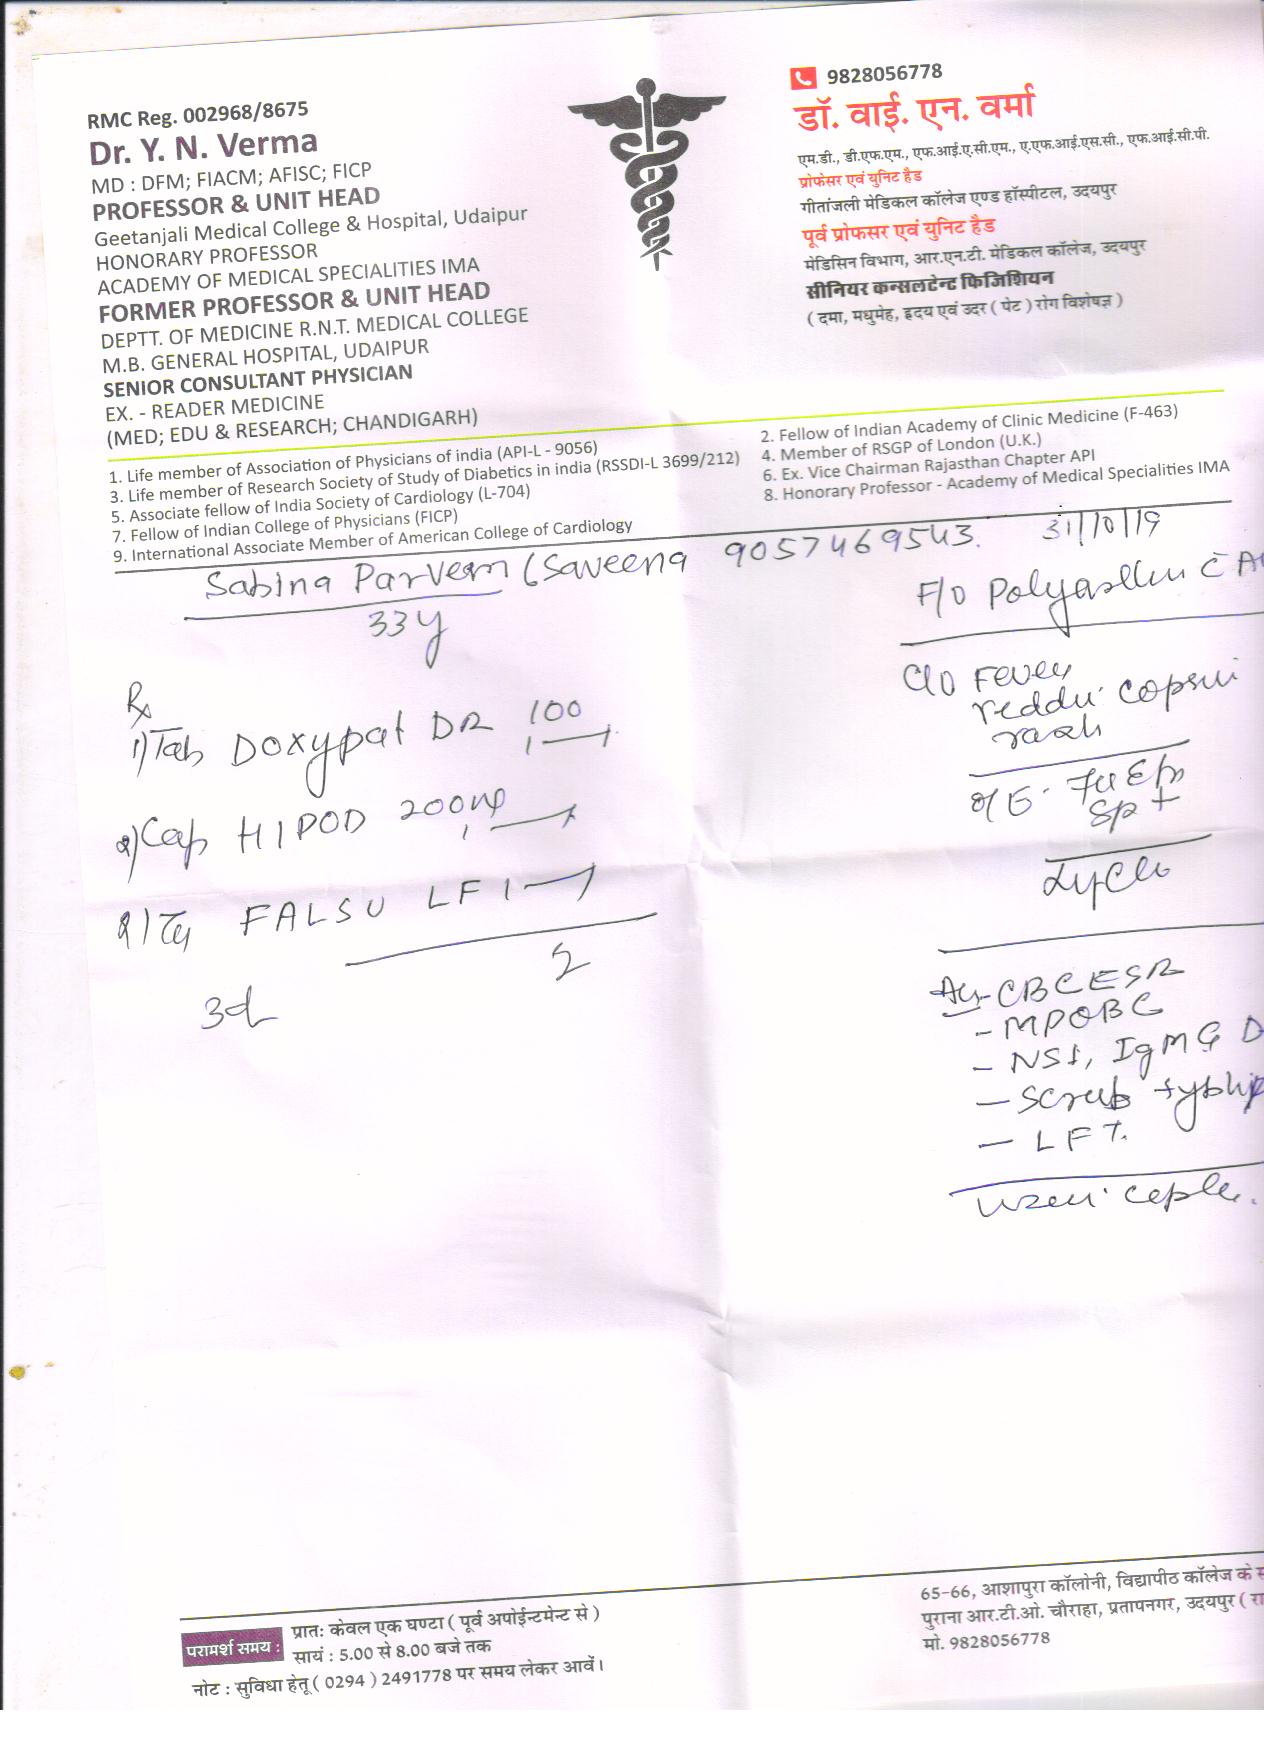 RMC Reg. 002968/8675
Dr. Y. N. Verma
MD : DFM; FIACM; AFISC; FICP
PROFESSOR & UNIT HEAD
Geetanjali Medical College & Hospital, Udaipur
HONORARY PROFESSOR
ACADEMY OF MEDICAL SPECIALITIES IMA
FORMER PROFESSOR & UNIT HEAD
DEPTT. OF MEDICINE R.N.T. MEDICAL COLLEGE
M.B. GENERAL HOSPITAL, UDAIPUR
SENIOR CONSULTANT PHYSICIAN
EX. - READER MEDICINE
(MED; EDU & RESEARCH; CHANDIGARH)
9828056778
डॉ. वाई. एन. वर्मा
एम.डी., डी.एफ.एम., एफ.आई.ए.सी.एम., ए.एफ.आई.एस.सी., एफ.आई.सी.पी.
प्रोफेसर एवं यूनिट हैड
गीतांजली मेडिकल कॉलेज एण्ड हॉस्पीटल, उदयपुर
पूर्व प्रोफसर एवं यूनिट हैड
मेडिसिन विभाग, आर.एन.टी. मेडिकल कॉलेज, उदयपुर
सीनियर कन्सलटेन्ट फिजिशियन
( दमा, मधुमेह, हृदय एवं उदर ( पेट ) रोग विशेषज्ञ )
1. Life member of Association of Physicians of india (API-L - 9056)
2. Fellow of Indian Academy of Clinic Medicine (F-463)
3. Life member of Research Society of Study of Diabetics in india (RSSDI-L 3699/212)
4. Member of RSGP of London (U.K.)
5. Associate fellow of India Society of Cardiology (L-704)
6. Ex. Vice Chairman Rajasthan Chapter API
7. Fellow of Indian College of Physicians (FICP)
8. Honorary Professor - Academy of Medical Specialities IMA
9. International Associate Member of American College of Cardiology
Sabina Parveen (Saveena 9057469543. 31/10/19
33y
F/O
C/O Fever
rash
O/E
Rx
1) Tab Doxypat DR 100
2) Cap HIPOD 200mg
FALSU LF 1
2
3d
- CBC ESR
- MPQBC
- NS1, IgMG D
- Scrub typh
- LFT.
परामर्श समय :
प्रातः केवल एक घण्टा ( पूर्व अपोईन्टमेन्ट से )
सायं : 5.00 से 8.00 बजे तक
नोट : सुविधा हेतू ( 0294 ) 2491778 पर समय लेकर आवें।
65-66, आशापुरा कॉलोनी, विद्यापीठ कॉलेज के
पुराना आर.टी.ओ. चौराहा, प्रतापनगर, उदयपुर
मो. 9828056778